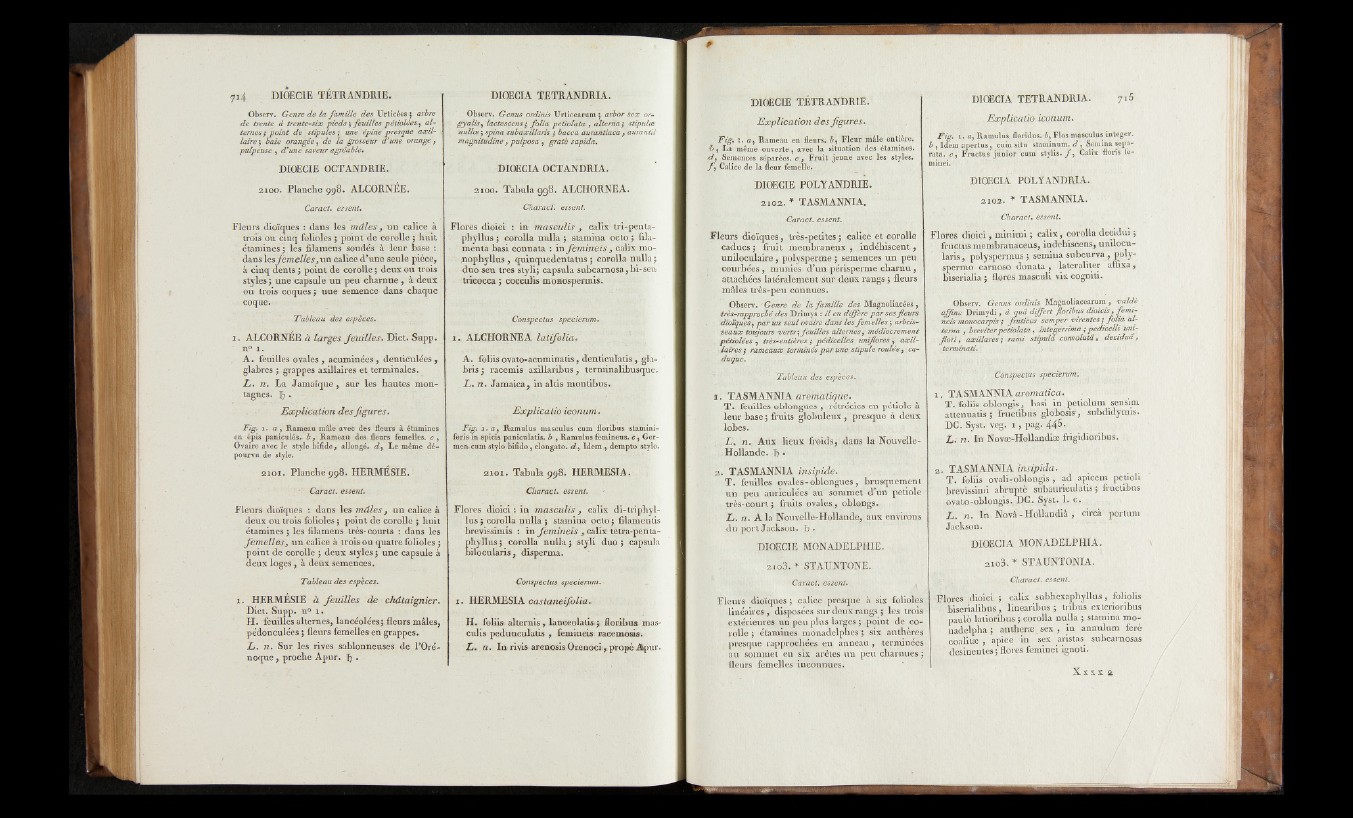 714 DIOECIE TÉTRANDRIE.
Observ. Genre de la famille des Urticées ; arbre
de trente à trente-six pieds ; feuilles pétiolées, al-
ternes ; point de stipules ; une épine presque axil-
laire ; baie orangée, de la grosseur d'une orange,
pulpeuse, d'une saveur agréable.
DIOECIE OCTANDRIE.
2100. Planche 998. ALCORNÉE.
Caract. essent.
Fleurs dioïques : dans les mâles, un calice à
trois ou cinq folioles ; point de corolle ; huit
étamines ; les filamens soudés à leur base :
dans les femelles, un calice d'une seule pièce,
à cinq dents ; point de corolle ; deux ou trois
styles ; une capsule un peu charnue, à deux
ou trois coques ; une semence dans chaque
coque.
Tableau des espèces.
1. ALCORNÉE à larges feuilles. Dict. Supp.
n° 1.
A. feuilles ovales, acuminées, denticulées,
glabres ; grappes axillaires et terminales.
L. n. La Jamaïque, sur les hautes mon-
tagnes. ♄.
Explication des figures.
Fig. 1. a, Rameau mâle avec des fleurs à étamines
en épis paniculés. b, Rameau des fleurs femelles. c,
Ovaire avec le style bifide, allongé. d, Le même dé-
pourvu de style.
2101. Planche 998. HERMÉSIE.
Caract. essent.
Fleurs dioïques : dans les mâles, un calice à
deux ou trois folioles ; point de corolle ; huit
étamines ; les filamens très-courts : dans les
femelles, un calice à trois ou quatre folioles ;
point de corolle ; deux styles ; une capsule à
deux loges, à deux semences.
Tableau des espèces.
1. HERMÉSIE à feuilles de châtaignier.
Dict. Supp. n° 1.
H. feuilles alternes, lancéolées ; fleurs mâles,
pédonculées ; fleurs femelles en grappes.
L. n. Sur les rives sablonneuses de l'Oré-
noque, proche Apur. ♄.
DIOECIA TETRANDRIA.
Observ. Genus ordinis Urticearum ; arbor sex or-
gyalis, lactescens ; folia petiolata, alterna ; stipulæ
nullæ ; spina subaxillaris ; bacca aurantiaca, aurantii
magnitudine, pulposa, gratè sapida.
DIOECIA OCTANDRIA.
2100. Tabula 998. ALCHORNEA.
Charact. essent.
Flores dioici : in masculis, calix tri-penta-
phyllus ; corolla nulla ; stamina octo ; fila-
menta basi connata : in femineis, calix mo-
nophyllus, quinquedentatus ; corolla nulla ;
duo seu tres styli ; capsula subcarnosa, bi- seu
tricocca ; cocculis monospermis.
Conspectus specierum.
1. ALCHORNEA latifolia.
A. foliis ovato-acuminatis, denticulatis, gla-
bris ; racemis axillaribus, terminalibusque.
L. n. Jamaica, in altis montibus.
Explicatio iconum.
Fig. 1. a, Ramulus masculus cum floribus stamini-
feris in spicis paniculatis. b, Ramulus femineus. c, Ger-
men cum stylo bifido, elongato. d, Idem, dempto stylo.
2101. Tabula 998. HERMESIA.
Charact. essent.
Flores dioici : in masculis, calix di-triphyl-
lus ; corolla nulla ; stamina octo ; filamentis
brevissimis : in femineis, calix tetra-penta-
phyllus ; corolla nulla ; styli duo ; capsula
bilocularis, disperma.
Conspectus specierum.
1. HERMESIA castaneifolia.
H. foliis alternis, lanceolatis ; floribus mas-
culis pedunculatis, femineis racemosis.
L. n. In rivis arenosis Orenoci, propè Apur.
DIOECIE TÉTRANDRIE.
Explication des figures.
Fig. 1. a, Rameau en fleurs. b, Fleur mâle entière.
b, La même ouverte, avec la situation des étamines.
d, Semences séparées. e, Fruit jeune avec les styles.
f, Calice de la fleur femelle.
DIOECIE POLYANDRIE.
2102. * TASMANNIA.
Caract. essent.
Fleurs dioïques, très-petites ; calice et corolle
caducs ; fruit membraneux, indéhiscent,
uniloculaire, polysperme ; semences un peu
courbées, munies d'un périsperme charnu,
attachées latéralement sur deux rangs ; fleurs
mâles très-peu connues.
Observ. Genre de la famille des Magnoliacées,
très-rapproché des Drimys : il en diffère par ses fleurs
dioïques, par un seul ovaire dans les femelles ; arbris-
seaux toujours verts ; feuilles alternes, médiocrement
pétiolées, très-entières ; pédicelles uniflores, axil-
laires ; rameaux terminés par une stipule roulée, ca-
duque.
Tableau des espèces.
1. TASMANNIA aromatique.
T. feuilles oblongues, rétrécies en pétiole à
leur base ; fruits globuleux, presque à deux
lobes.
L. n. Aux lieux froids, dans la Nouvelle-
Hollande. ♄.
2. TASMANNIA insipide.
T. feuilles ovales-oblongues, brusquement
un peu auriculées au sommet d'un pétiole
très-court ; fruits ovales, oblongs.
L. n. A la Nouvelle-Hollande, aux environs
du port Jackson. ♄.
DIOECIE MONADELPHIE.
2103. * STAUNTONE.
Caract. essent.
Fleurs dioïques ; calice presque à six folioles
linéaires, disposées sur deux rangs ; les trois
extérieures un peu plus larges ; point de co-
rolle ; étamines monadelphes ; six anthères
presque rapprochées en anneau, terminées
au sommet en six arêtes un peu charnues ;
fleurs femelles inconnues.
DIOECIA TETRANDRIA. 715
Explicatio iconum.
Fig. 1. a, Ramulus floridus. b, Flos masculus integer.
b, Idem apertus, cum situ staminum. d, Semina sepa-
rata. e, Fructus junior cum stylis. f, Calix floris fe-
minei.
DIOECIA POLYANDRIA.
2102. * TASMANNIA.
Charact. essent.
Flores dioici, minimi ; calix, corolla decidui ;
fructus membranaceus, indehiscens, unilocu-
laris, polyspermus ; semina subcurva, poly-
spermo carnoso donata, lateraliter affixa,
biserialia ; flores masculi vix cogniti.
Observ. Genus ordinis Magnoliacearum, valdè
affine Drimydi, à quâ differt floribus dioicis, femi-
neis monocarpis ; frutices semper virentes ; folia al-
terna, breviter petiolata, integerrima ; pedicelli uni-
flori, axillares ; rami stipulâ convolutâ, deciduâ,
terminati.
Conspectus specierum.
1. TASMANNIA aromatica.
T. foliis oblongis, basi in petiolum sensim
attenuatis ; fructibus globosis, subdidymis.
DC. Syst. veg. 1, pag. 445.
L. n. In Novæ-Hollandiæ frigidioribus.
2. TASMANNIA insipida.
T. foliis ovali-oblongis, ad apicem petioli
brevissimi abruptè subauriculatis ; fructibus
ovato-oblongis. DC. Syst. l. c.
L. n. In Novâ-Hollandiâ, circà portum
Jackson.
DIOECIA MONADELPHIA.
2103. * STAUNTONIA.
Charact. essent.
Flores dioici ; calix subhexaphyllus, foliolis
biserialibus, linearibus ; tribus exterioribus
paulò latioribus ; corolla nulla ; stamina mo-
nadelpha ; antheræ sex, in annulum ferè
coalitæ, apice in sex aristas subcarnosas
desinentes ; flores feminei ignoti.
X x x x 2